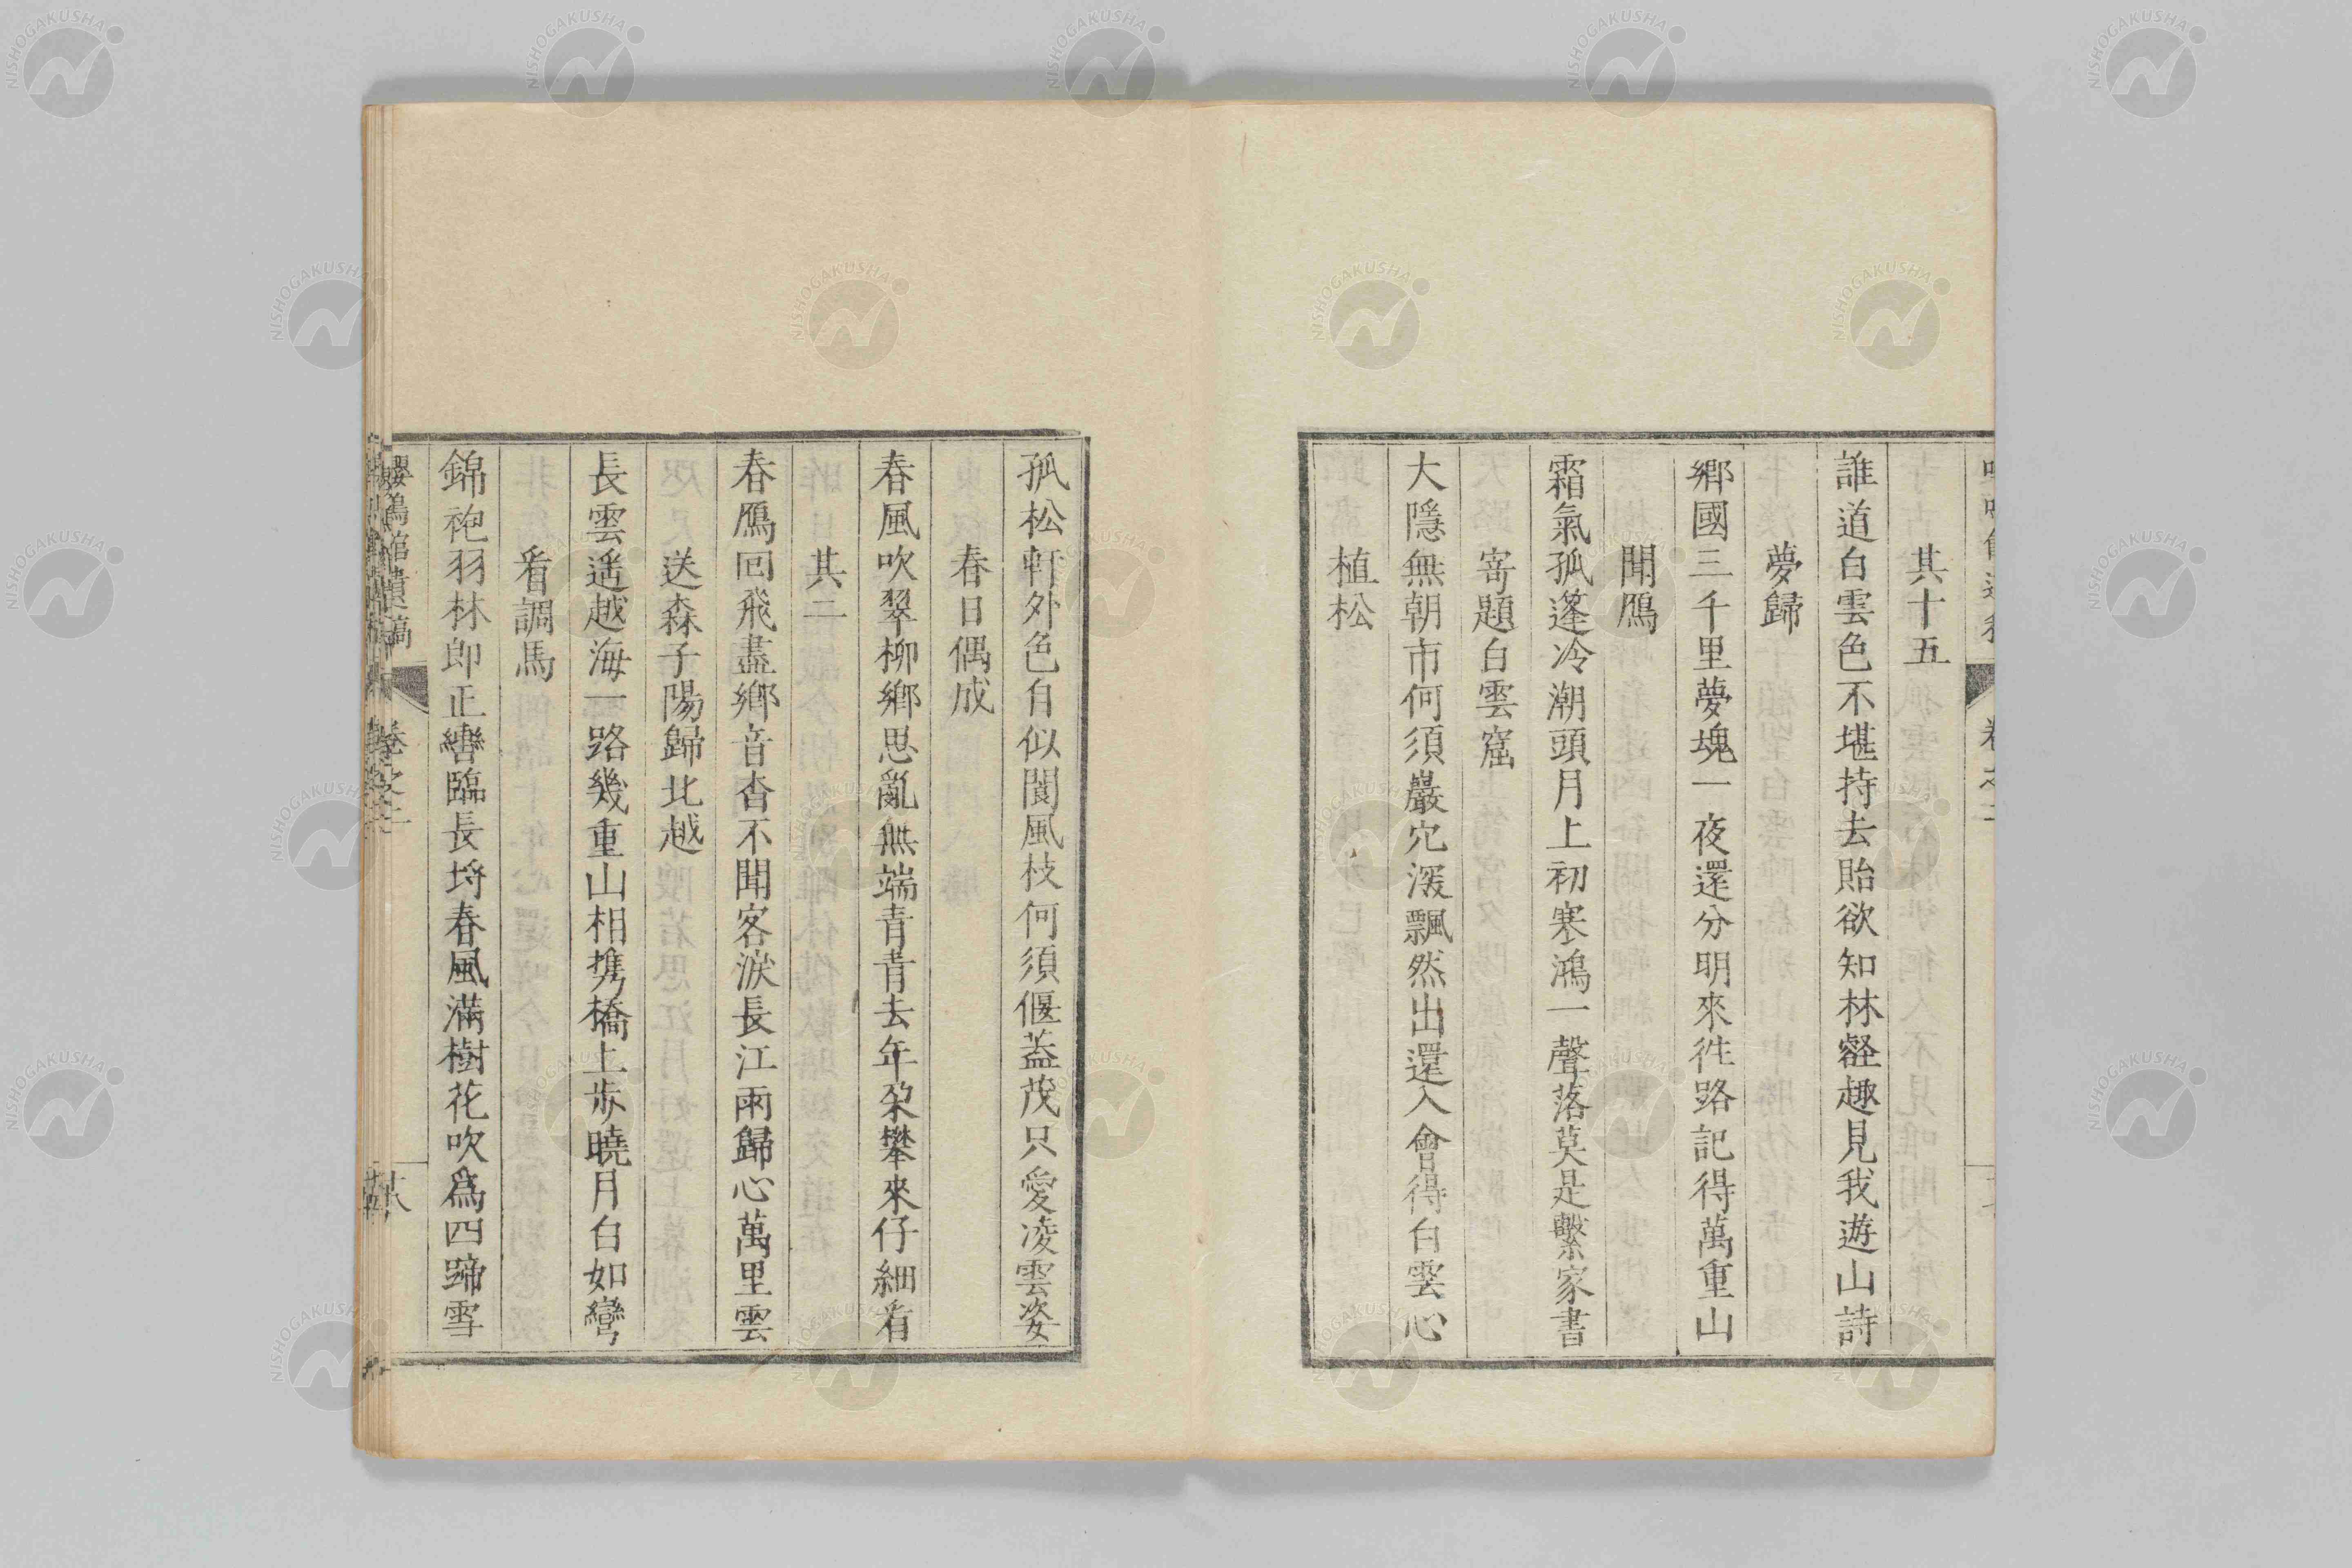 其十五
誰道白雲色不堪持去貽欲知林壑趣見我遊山詩
夢歸
鄉國三千里夢魂一夜還分明來徃路記得萬重山
聞鴈
霜氣孤蓬冷潮頭月上初寒鴻一聲落莫是繫家書
寄題白雲窟
大隱無朝市何須巖穴深飄然出還入會得白雲心
植松
孤松軒外色自似閬風枝何須偃蓋茂只愛凌雲姿
春日偶成
春風吹翠柳鄉思亂無端青青去年朶攀來仔細看
其二
春鴈回飛盡鄉音杳不聞客淚長江雨歸心萬里雲
送森子陽歸北越
長雲遥越海一路幾重山相携橋上步曉月白如彎
看調馬
錦袍羽林郎正轡臨長埒春風滿樹花吹爲四蹄雪
嚶鳴館遺稿 卷之二 十八
NISHOGAKUSHA